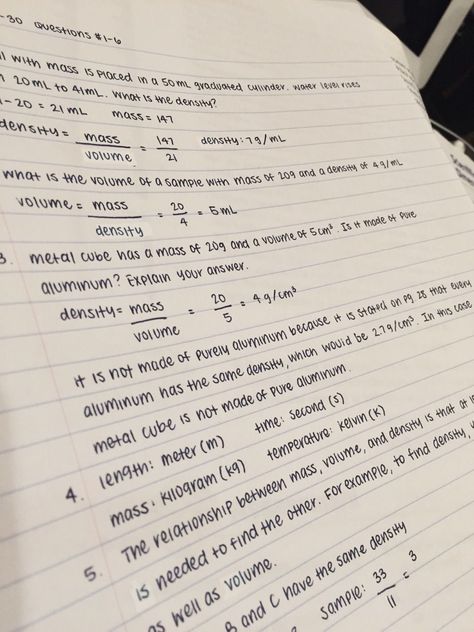 -30 Questions #1-6
with mass is placed in a 50mL graduated cylinder. water level rises
20mL to 41mL. What is the density?
-20 = 21mL mass = 147
density = mass/volume = 147/21 density: 7g/mL
What is the volume of a sample with mass of 20g and a density of 4g/mL
volume = mass/density = 20/4 = 5mL
3. metal cube has a mass of 20g and a volume of 5cm³. Is it made of pure
aluminum? Explain your answer.
density = mass/volume = 20/5 = 4g/cm³
it is not made of purely aluminum because it is stated on pg 28 that every
aluminum has the same density, which would be 2.7g/cm³. In this case
metal cube is not made of pure aluminum.
4. length: meter (m) time: second (s)
mass: kilogram (kg) temperature: kelvin (K)
5. The relationship between mass, volume, and density is that at
is needed to find the other. For example, to find density,
as well as volume.
B and C have the same density
sample: 33/11 = 3